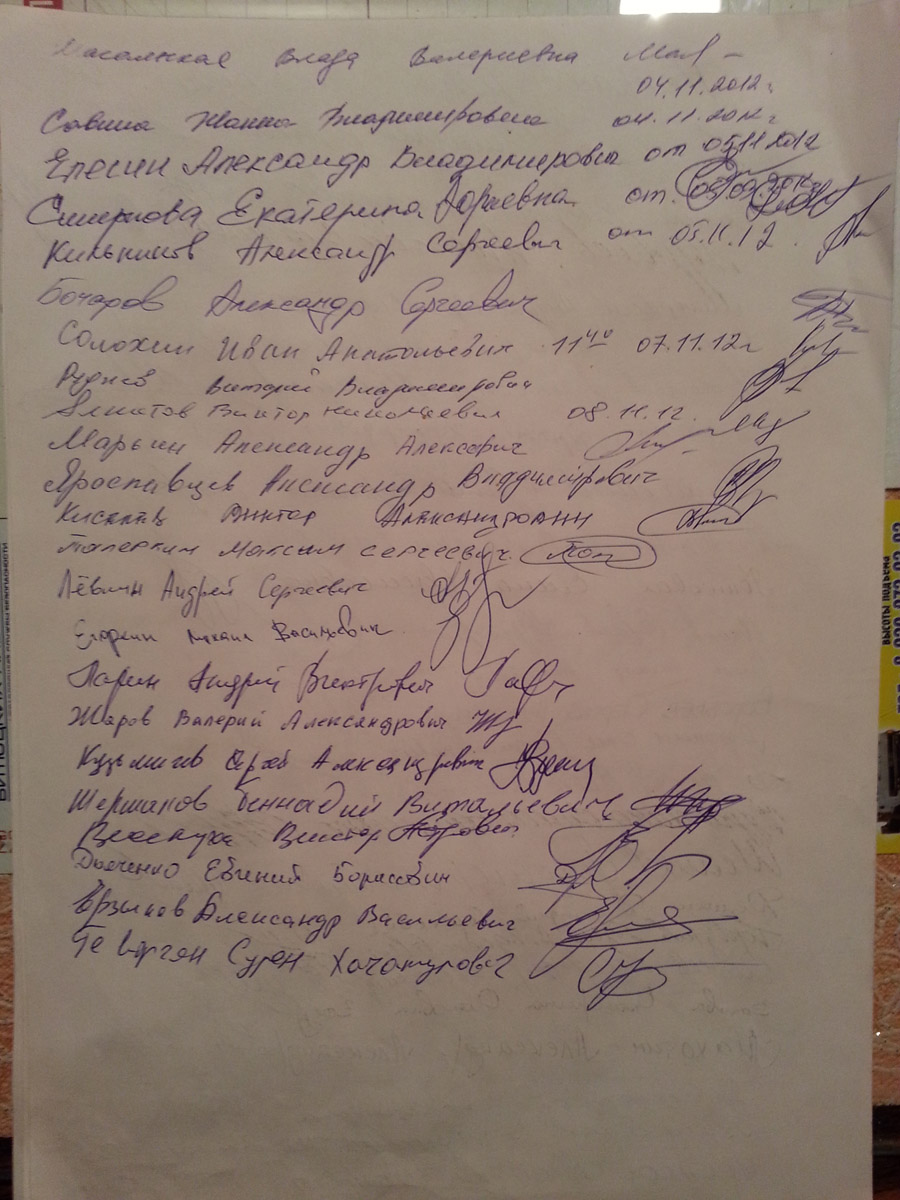 Влада Валериевна
04.11.2012г
Савина Жанна Владимировна 04.11.2012г
Елесин Александр Владимирович от 05.11.2012
Смирнова Екатерина Юрьевна от
Кильников Александр Сергеевич от 05.11.12
Бочаров Александр Сергеевич
Солохин Иван Анатольевич 11 40 07.11.12г
Виталий Владимирович
Виктор Николаевич 08.11.12.
Марьин Александр Алексевич
Ярославцев Александр Владимирович
Виктор Александрович
Максим Сергеевич
Лёвин Андрей Сергеевич
Михаил Васильевич
Ларин Андрей Викторович
Жаров Валерий Александрович
Кузьмичев Сергей Александрович
Шершаков Геннадий Витальевич
Виктор
Дьяченко Евгений Борисович
Александр Васильевич
Геворгян Сурен Хачатурович
ВЫСОТЫ ПОДЪЕМА